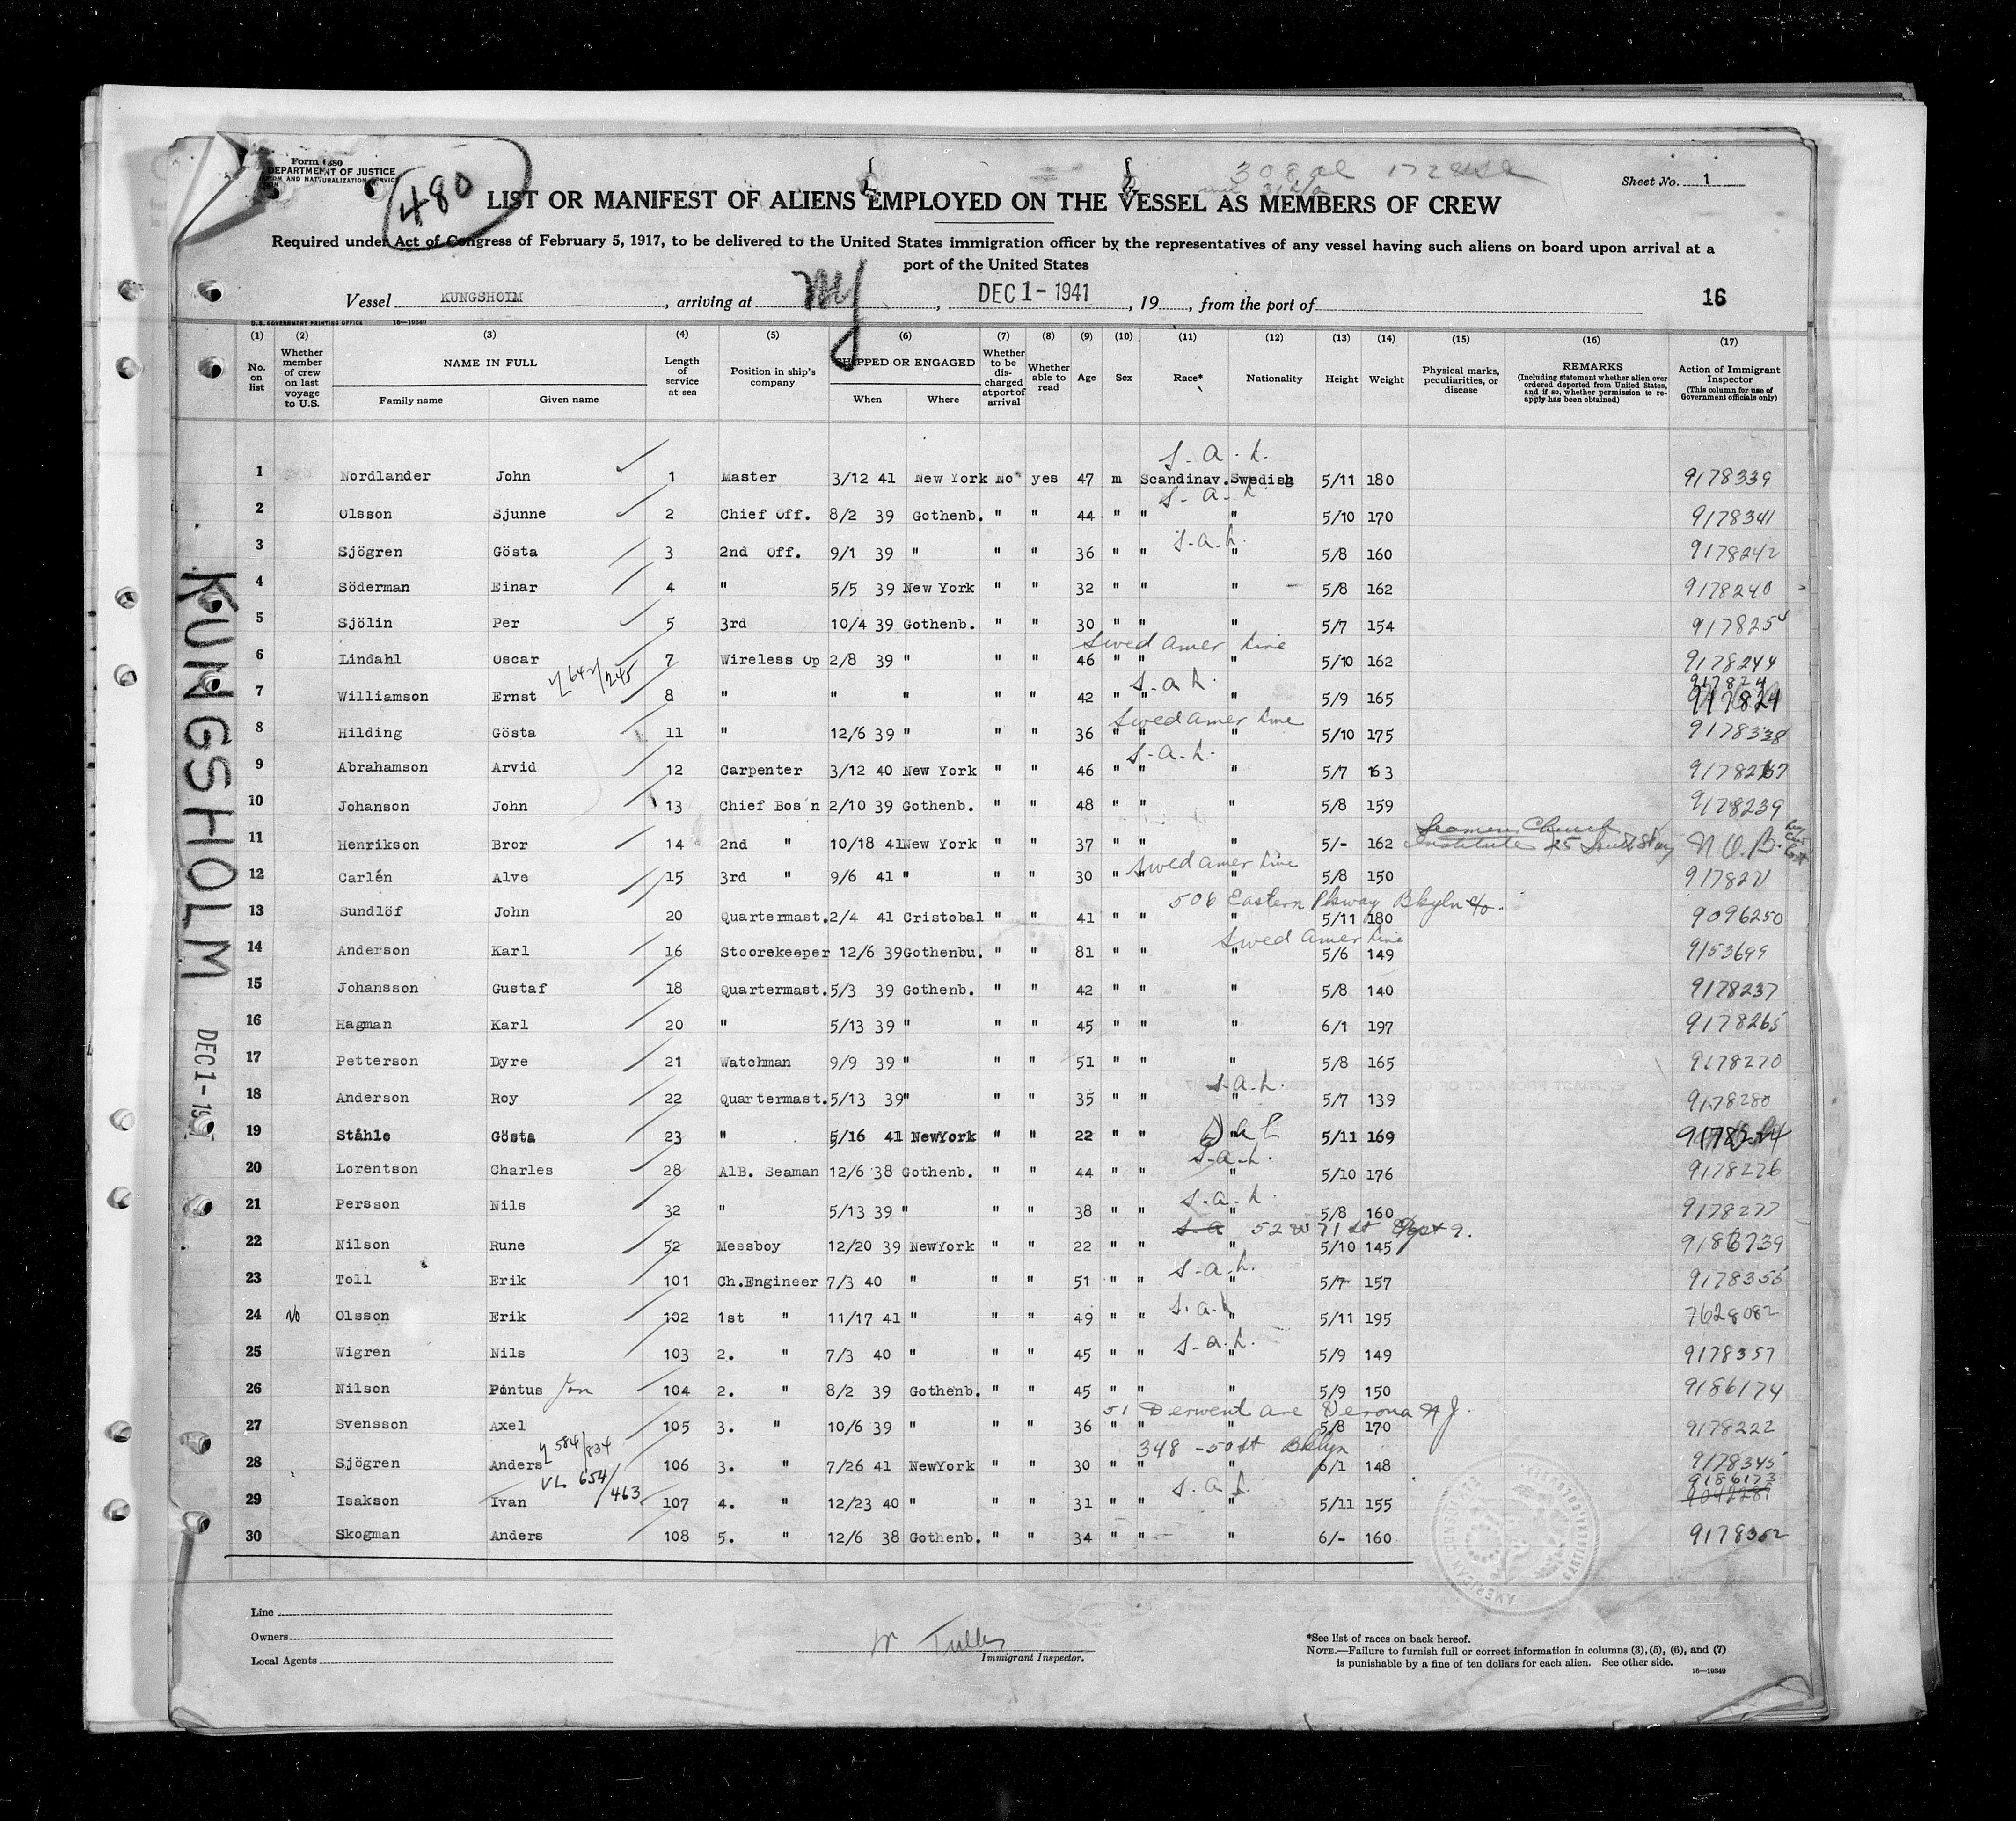 Form 680
DEPARTMENT OF JUSTICE
AND NATURALIZATION SERVICE
480
308 al 172 usa
Sheet No. 1
LIST OR MANIFEST OF ALIENS EMPLOYED ON THE VESSEL AS MEMBERS OF CREW
Required under Act of Congress of February 5, 1917, to be delivered to the United States immigration officer by the representatives of any vessel having such aliens on board upon arrival at a
port of the United States
Vessel KUNGSHOLM, arriving at NY, DEC 1 - 1941, 19, from the port of
16
U.S. GOVERNMENT PRINTING OFFICE 16—19349
(1) (2) (3) (4) (5) (6) (7) (8) (9) (10) (11) (12) (13) (14) (15) (16) (17)
No. on list
Whether member of crew on last voyage to U.S.
NAME IN FULL
Family name Given name
Length of service at sea
Position in ship's company
SHIPPED OR ENGAGED
When Where
Whether to be discharged at port of arrival
Whether able to read
Age
Sex
Race*
Nationality
Height
Weight
Physical marks, peculiarities, or disease
REMARKS
(Including statement whether alien ever ordered deported from United States, and if so, whether permission to reapply has been obtained)
Action of Immigrant Inspector
(This column for use of Government officials only)
S.A.L.
1 Nordlander John 1 Master 3/12 41 New York No yes 47 m Scandinav. Swedish 5/11 180 9178339
S.A.L.
2 Olsson Sjunne 2 Chief Off. 8/2 39 Gothenb. " " 44 " " " 5/10 170 9178341
S.A.L.
3 Sjögren Gösta 3 2nd Off. 9/1 39 " " " 36 " " " 5/8 160 9178242
4 Söderman Einar 4 " 5/5 39 New York " " 32 " " " 5/8 162 9178240
5 Sjölin Per 5 3rd 10/4 39 Gothenb. " " 30 " " " 5/7 154 9178255
Swed Amer Line
6 Lindahl Oscar 7 Wireless Op 2/8 39 " " " 46 " " " 5/10 162 9178244
642/245
S.A.L.
7 Williamson Ernst 8 " " " " " 42 " " " 5/9 165
Swed Amer Line
8 Hilding Gösta 11 " 12/6 39 " " " 36 " " " 5/10 175 9178338
S.A.L.
9 Abrahamson Arvid 12 Carpenter 3/12 40 New York " " 46 " " " 5/7 163
10 Johanson John 13 Chief Bos'n 2/10 39 Gothenb. " " 48 " " " 5/8 159 9178239
Seamens Church
11 Henrikson Bror 14 2nd " 10/18 41 New York " " 37 " " " 5/- 162 Institute 25 South St NY N.O.B.
Swed Amer Line
12 Carlén Alve 15 3rd " 9/6 41 " " " 30 " " " 5/8 150 9178271
506 Eastern Pkway Bkyln c/o
13 Sundlöf John 20 Quartermast. 2/4 41 Cristobal " " 41 " " " 5/11 180 9096250
Swed Amer Line
14 Anderson Karl 16 Stoorekeeper 12/6 39 Gothenbu. " " 81 " " " 5/6 149 9153699
15 Johansson Gustaf 18 Quartermast. 5/3 39 Gothenb. " " 42 " " " 5/8 140 9178237
16 Hagman Karl 20 " 5/13 39 " " " 45 " " " 6/1 197 9178265
17 Petterson Dyre 21 Watchman 9/9 39 " " " 51 " " " 5/8 165 9178270
S.A.L.
18 Anderson Roy 22 Quartermast. 5/13 39 " " " 35 " " " 5/7 139 9178280
S.A.L.
19 Ståhle Gösta 23 " 5/16 41 NewYork " " 22 " " " 5/11 169
S.A.L.
20 Lorentson Charles 28 AlB. Seaman 12/6 38 Gothenb. " " 44 " " " 5/10 176 9178276
S.A.L.
21 Persson Nils 32 " 5/13 39 " " " 38 " " " 5/8 160 9178277
S.A 52 W 71 St Apt 9.
22 Nilson Rune 52 Messboy 12/20 39 NewYork " " 22 " " " 5/10 145 9186739
S.A.L.
23 Toll Erik 101 Ch.Engineer 7/3 40 " " " 51 " " " 5/7 157 9178355
S.A.L.
24 No Olsson Erik 102 1st " 11/17 41 " " " 49 " " " 5/11 195 7628082
S.A.L.
25 Wigren Nils 103 2. " 7/3 40 " " " 45 " " " 5/9 149 9178357
26 Nilson Pontus Jon 104 2. " 8/2 39 Gothenb. " " 45 " " " 5/9 150 9186174
51 Derwent Ave Verona NJ.
27 Svensson Axel 105 3. " 10/6 39 " " " 36 " " " 5/8 170 9178222
584/834
348 - 50 St Bklyn
28 Sjögren Anders 106 3. " 7/26 41 NewYork " " 30 " " " 6/1 148 9178345
VL 654/463
S.A.L.
9186173
29 Isakson Ivan 107 4. " 12/23 40 " " " 31 " " " 5/11 155 9042289
30 Skogman Anders 108 5. " 12/6 38 Gothenb. " " 34 " " " 6/- 160 9178352
KUNGSHOLM DEC 1 - 1941
AMERICAN CONSULATE
Line
Owners
Local Agents
Immigrant Inspector.
*See list of races on back hereof.
NOTE.—Failure to furnish full or correct information in columns (3), (5), (6), and (7)
is punishable by a fine of ten dollars for each alien. See other side. 16—19349